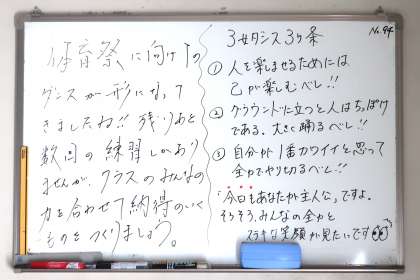 体育祭に向けての
ダンスが形になって
きましたね!! 残りあと
数回の練習しかあり
ませんが、クラスのみんなの
力を合わせて納得のいく
ものをつくりましょう。
No.94
3ダンス3ヶ条
① 人を楽しませるためには
己が楽しむベし!!
② グラウンドに立つと人はちっぽけ
である。大きく踊るべし!!
③ 自分が1番カワイイと思って
全力でやり切るべし!!
「今日もあなたが主人公」ですよ。
そろそろ、みんなの全力と
ステキな笑顔が見たいです